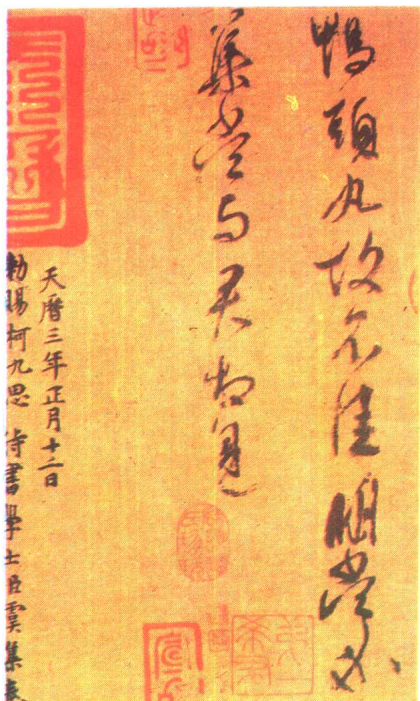 鴨頭丸故不佳明當必
集當与君相見
天曆三年正月十二日
勑賜柯九思侍書學士臣虞集奉